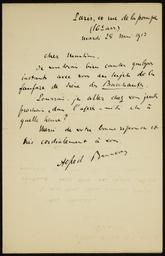 Paris, 10 rue de la pompe
(16e arr)
mardi 28 mai 1912
cher Monsieur,
Je voudrais bien causer quelques
instants avec vous au sujet de la
fanfare de scène des Bacchantes
Pourrais-je aller chez vous jeudi
prochain, dans l'après-midi et à
quelle heure?
Merci de votre bonne réponse et
très cordialement à vous
Alfred Bruneau